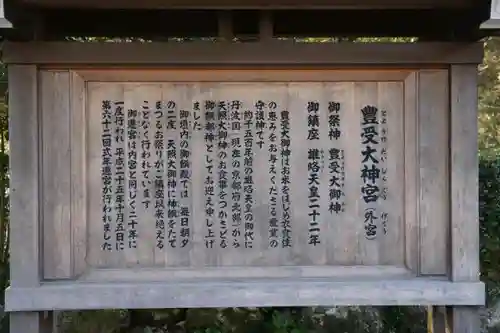 豊受大神宮(外宮)
とようけだいじんぐう げくう
御祭神 豊受大御神
とようけのおおみかみ
御鎮座 雄略天皇二十二年
豊受大御神はお米をはじめ衣食住
の恵みをお与えくださる産業の
守護神です
約千五百年前の雄略天皇の御代に
丹波国(現在の京都府北部)から
天照大御神のお食事をつかさどる
御饌都神としてお迎え申し上げ
ました
御垣内の御饌殿では 毎日朝夕
の二度 天照大御神に神饌をたて
まつるお祭りがご鎮座以来絶える
ことなく行われています
御遷宮は内宮と同じく二十年に
一度行われ 平成二十五年十月五日に
第六十二回式年遷宮が行われました